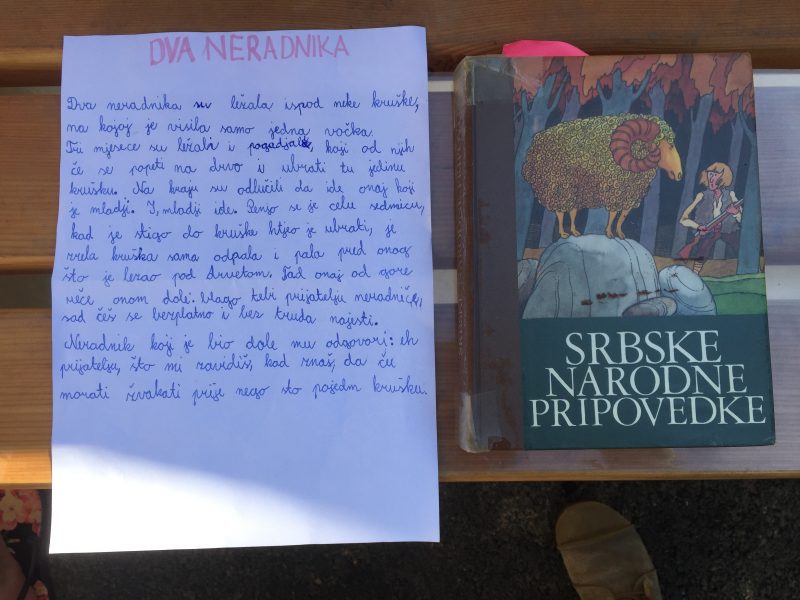 DVA NERADNIKA
Dva neradnika su ležala ispod neke kruške,
na kojoj je visila samo jedna voćka.
Tri mjesece su ležali i pogađali, koji od njih
će se popeti na drvo i ubrati tu jedinu
krušku. Na kraju su odlučili da ide onaj koji
je mlađi. I, mlađi ide. Penjo se je celu sedmicu,
kad je stigo do kruške htjeo je ubrati, je
zrela kruška sama odpala i pala pred onog
što je lezao pod drvetom. Tad onaj od gore
reče onom dole: blago tebi prijatelju neradniče,
sad ćeš se bezplatno i bez truda najesti.
Neradnik koji je bio dole mu odgovori: eh
prijatelju, što mi zavidiš, kad znaš, da ću
morati žvakati prije nego sto pojedm krušku.
SRBSKE
NARODNE
PRIPOVEDKE